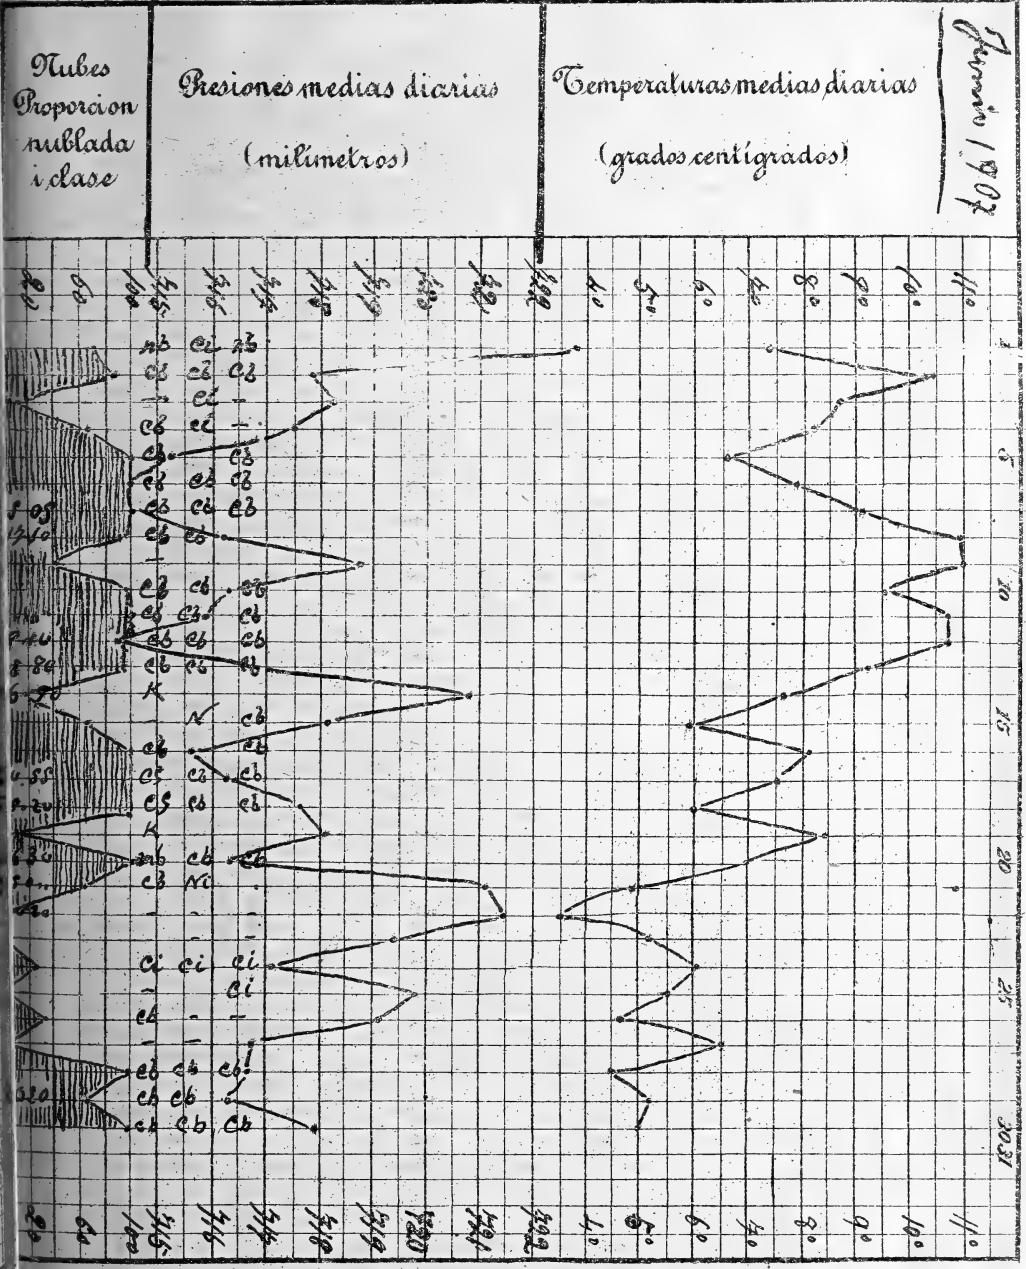 Nubes
Proporcion
nublada
i clase
Presiones medias diarias
(milímetros)
Temperaturas medias diarias
(grados centígrados)
Junio 1907
20 60 100 715 716 717 718 719 721 722 4° 5° 6° 7° 8° 9° 10° 11°
1
nb ci nb
cb cb cb
- ci -
cb ci -
cb cb
5
cb cb cb
cb cb cb
cb cb
-
cb cb cb
10
cb cb cb
cb cb cb
cb cb cb
K
- N cb
15
cb cb
cb cb
cb cb
K
nb cb cb
20
cb Ni
- - -
- -
ci ci ci
- ci
25
cb - -
- -
cb cb cb
cb cb
cb cb cb
30 31
20 60 100 715 716 717 718 719 720 721 722 4° 5° 6° 7° 8° 9° 10° 11°